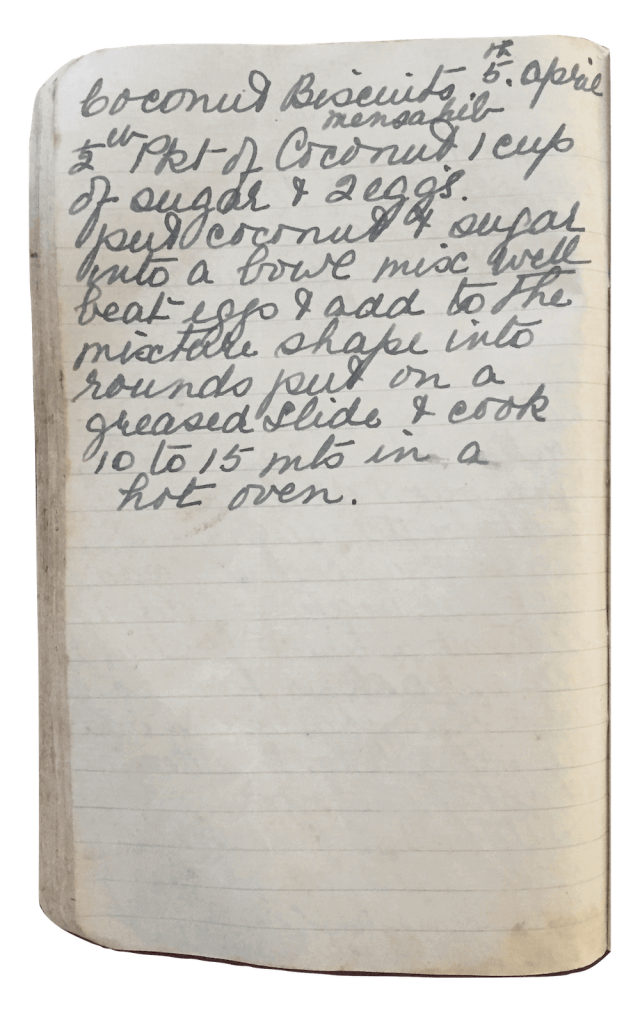 Coconut Biscuits. 5th. april
mensahib
½ lb Pkt of Coconut 1 cup
of sugar & 2 eggs.
put coconut & sugar
into a bowl mix well
beat eggs & add to the
mixture shape into
rounds put on a
greased slide & cook
10 to 15 mts in a
hot oven.